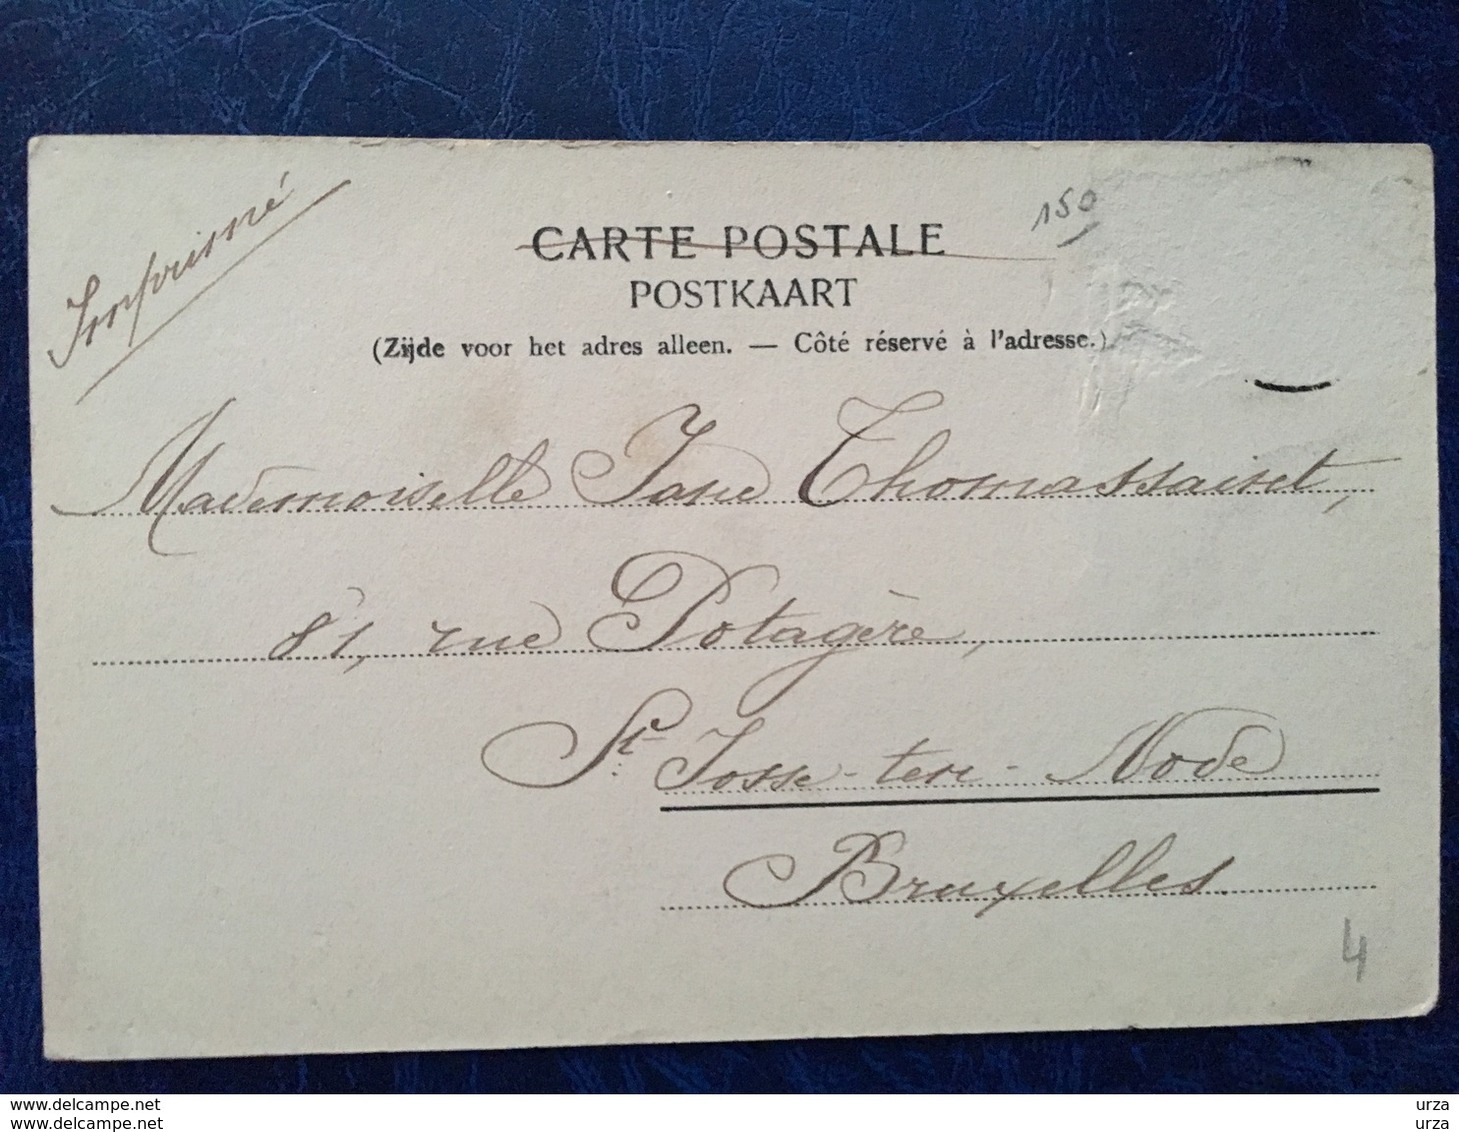 Imprimé
150
CARTE POSTALE
POSTKAART
(Zijde voor het adres alleen. — Côté réservé à l'adresse.)
Mademoiselle Jane Thomassaint,
81, rue Potagère,
St Josse-ten-Node
Bruxelles.
4
delcampe.net urza
delcampe.net urza